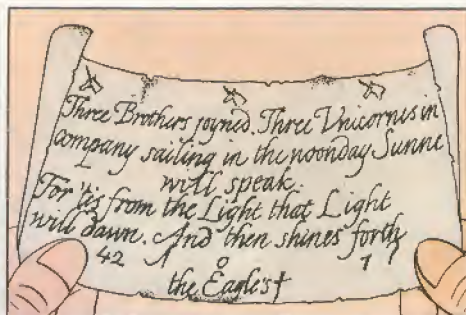 Three Brothers joyned. Three Unicornes in
company sailing in the noonday Sunne
will speak.
For 'tis from the Light that Light
will dawn. And then shines forth
42 o 1
the Eagles†